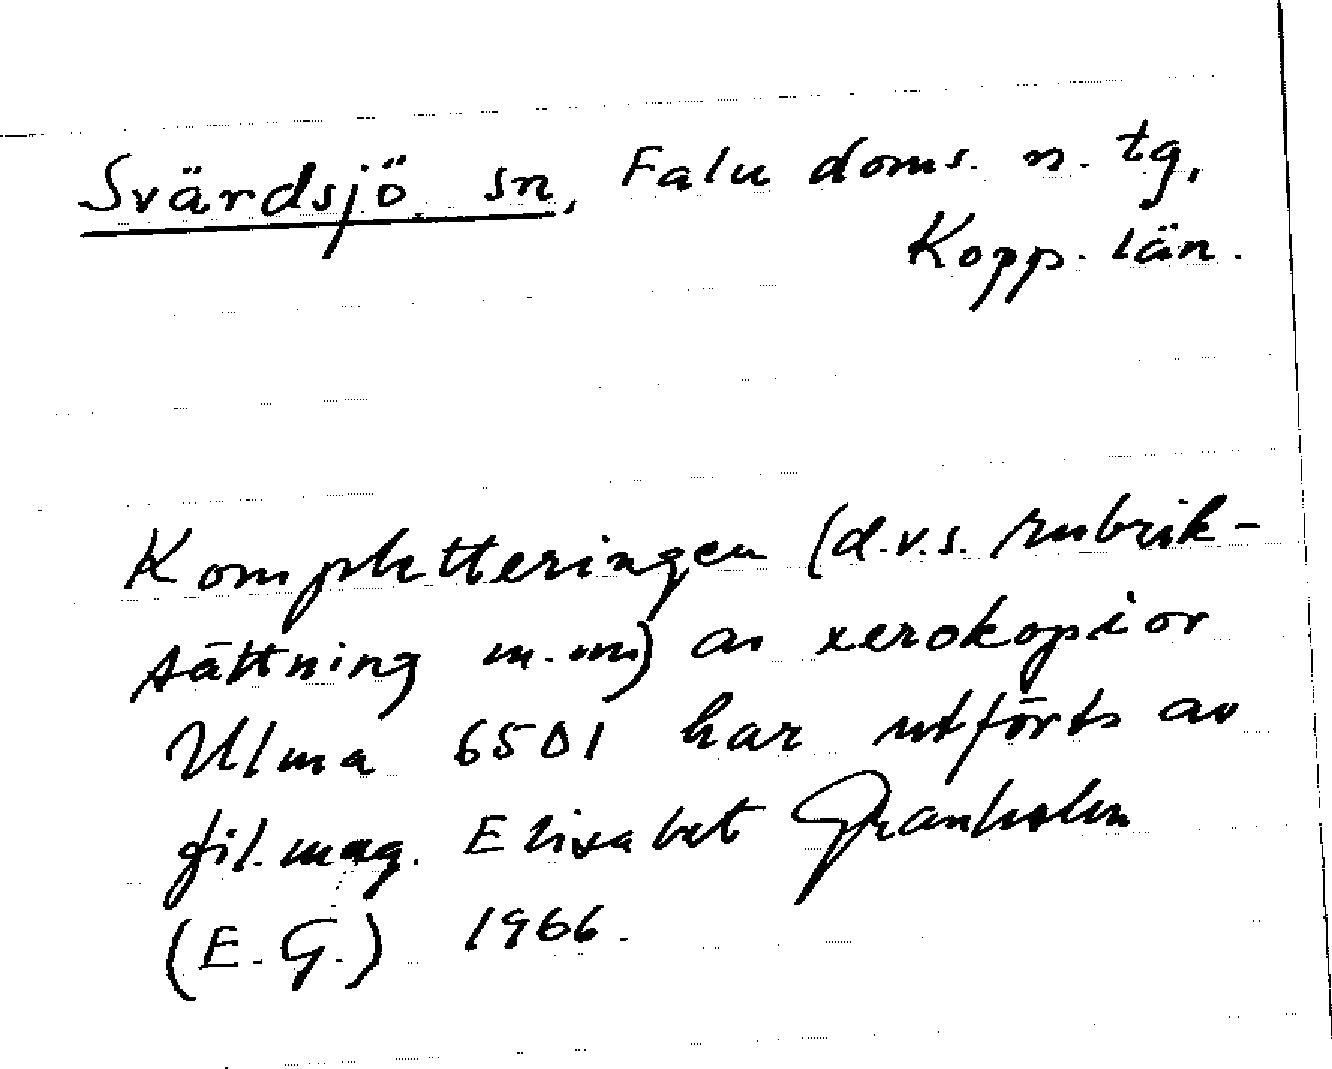 Svärdsjö sn, Falu doms. n. tg,
Kopp. län.
Kompletteringen (d.v.s. rubrik-
sättning m.m) av xerokopior
Ulma 6501 har utförts av
fil. mag. Elisabet Granholm
(E. G.) 1966.